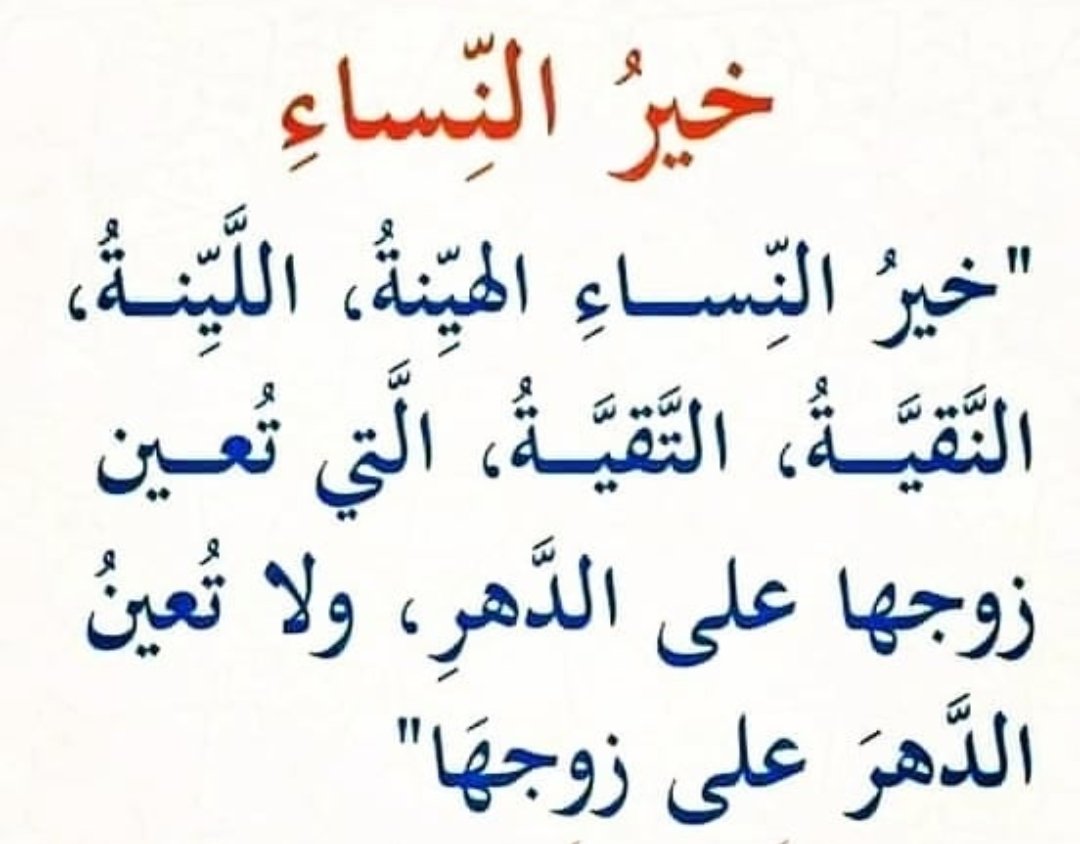 خيرُ النِّساءِ
"خيرُ النِّســـاءِ الهيِّنةُ، اللَّيِّنــةُ،
النَّقيَّــةُ، التَّقيَّــةُ، الَّتي تُعــين
زوجها على الدَّهرِ، ولا تُعينُ
الدَّهرَ على زوجهَا"